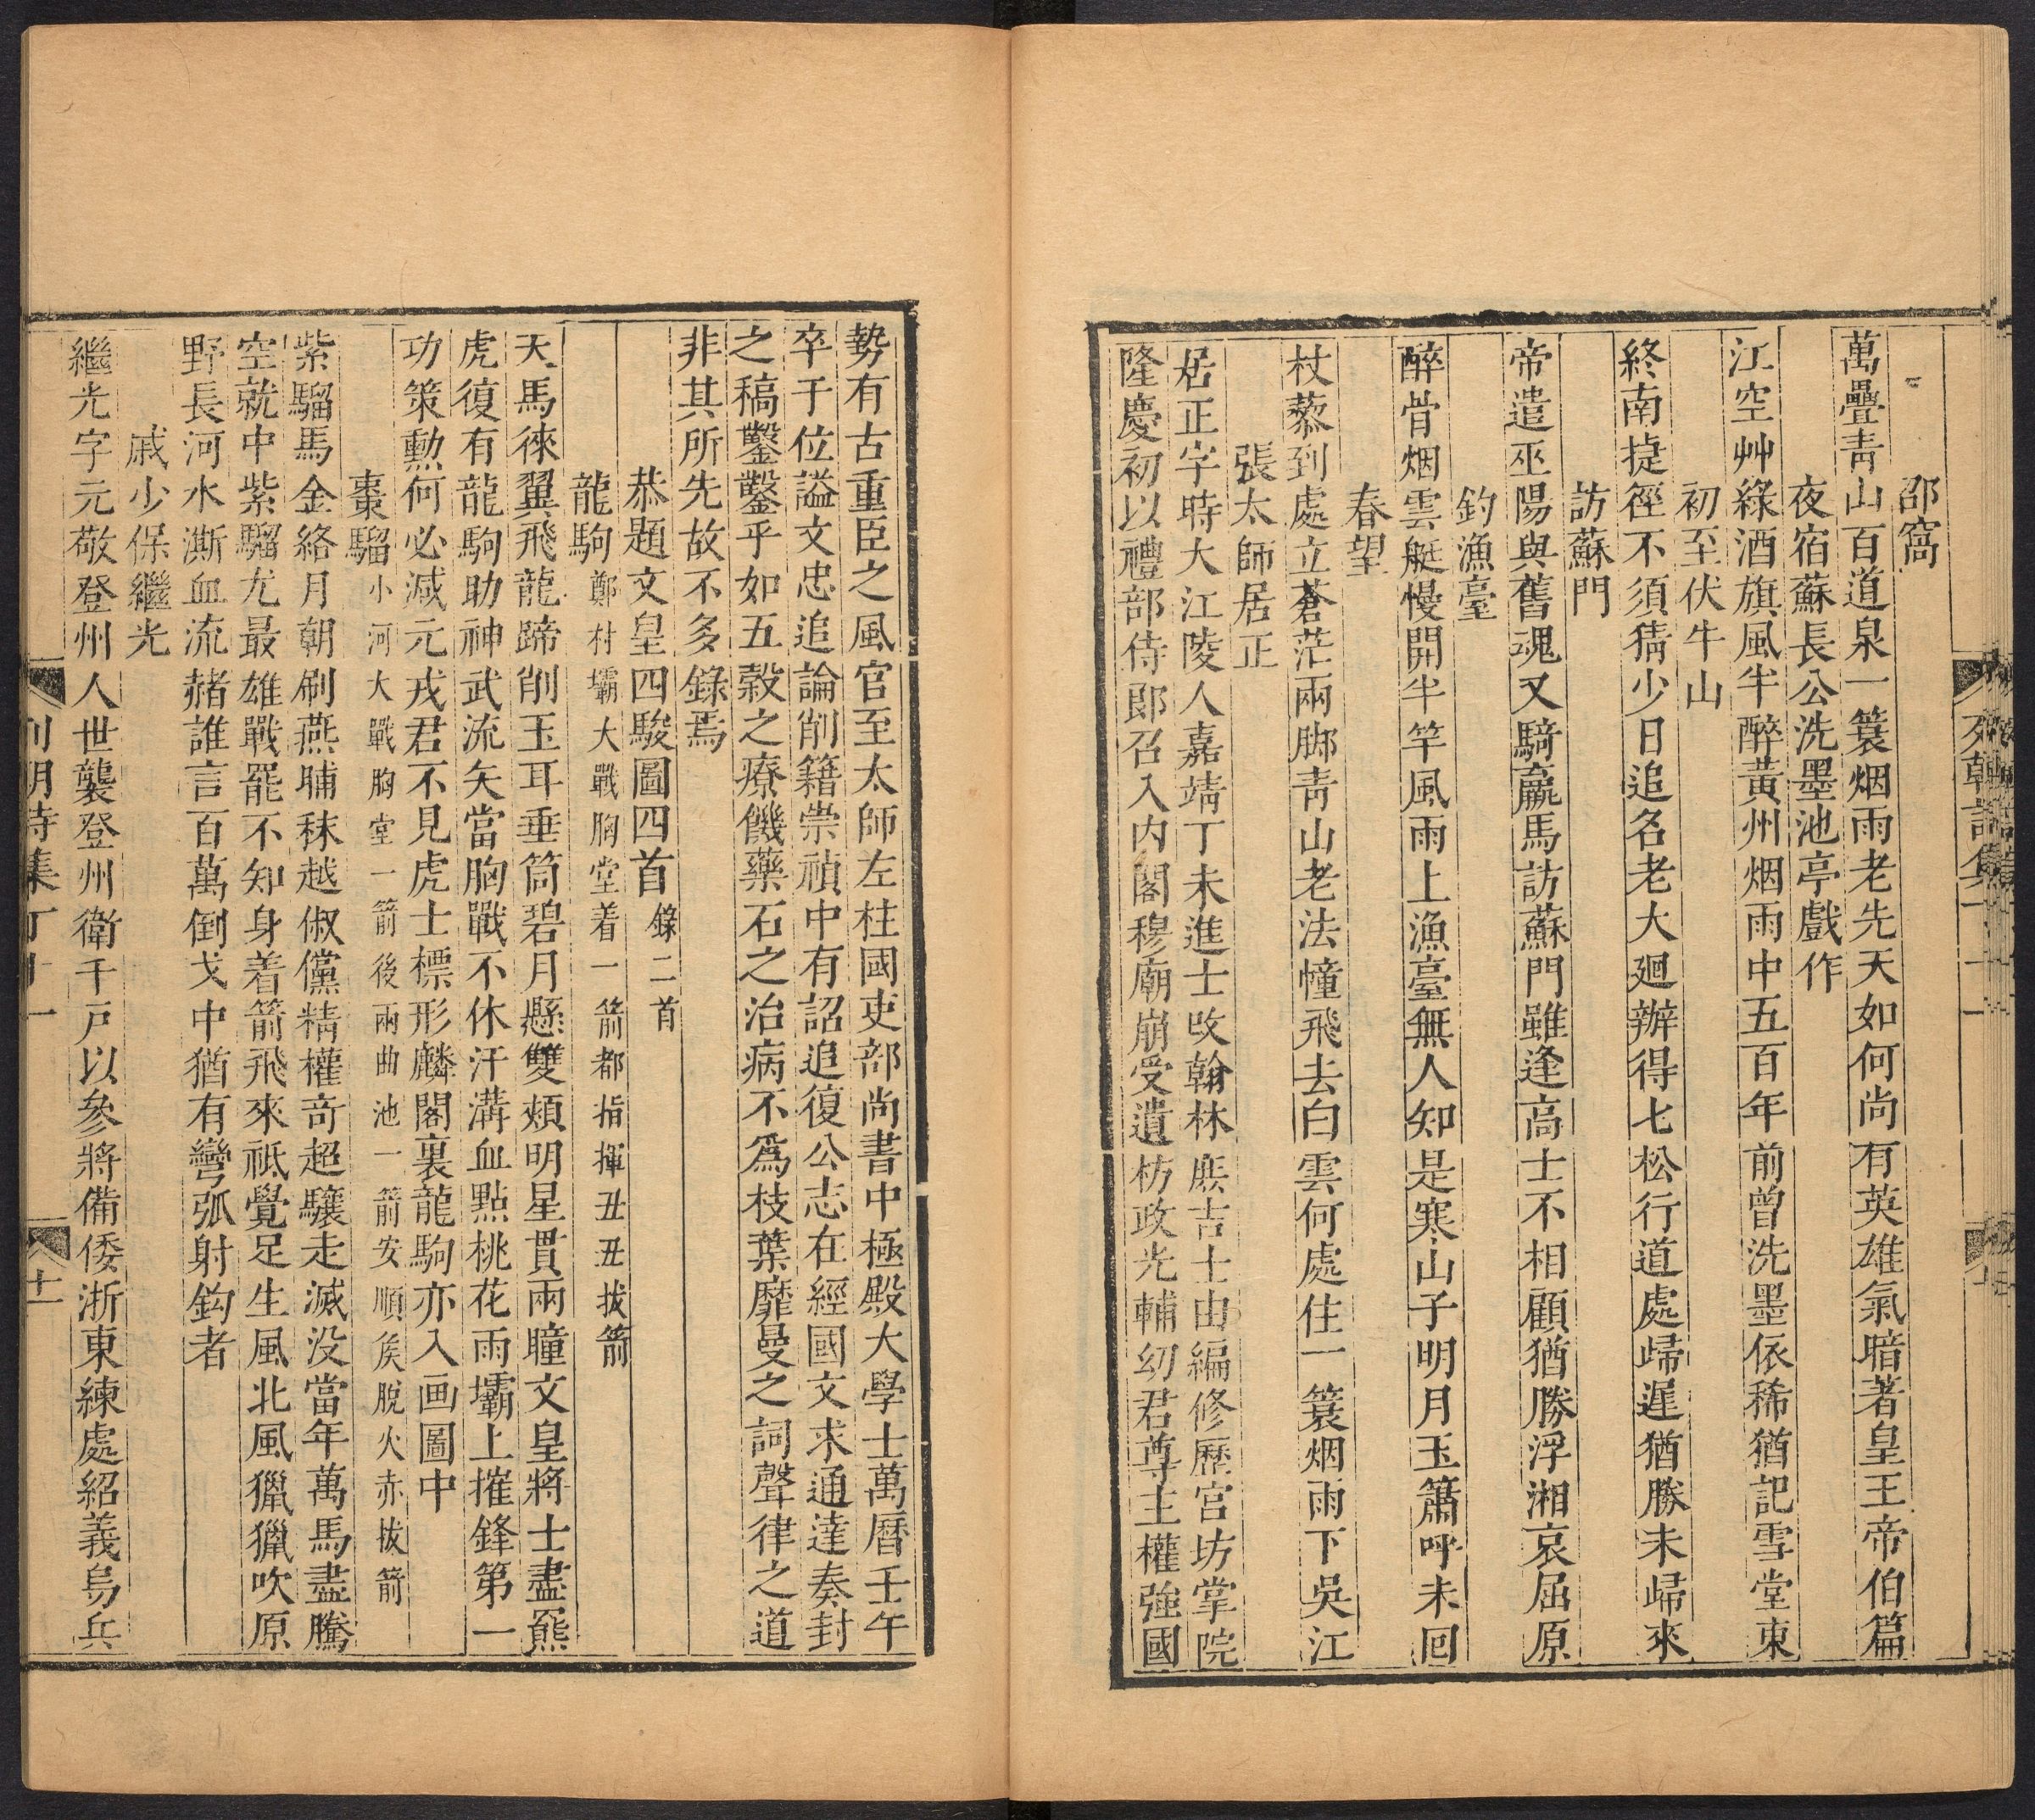 邵窩
萬疊青山百道泉一簑烟雨老先天如何尚有英雄氣暗著皇王帝伯篇
夜宿蘇長公洗墨池亭戲作
江空艸綠酒旗風半醉黃州烟雨中五百年前曾洗墨依稀猶記雪堂東
初至伏牛山
終南捷徑不須猜少日追名老大廻辦得七松行道處歸遲猶勝未歸來
訪蘇門
帝遣巫陽與舊魂又騎羸馬訪蘇門雖逢高士不相顧猶勝浮湘哀屈原
釣漁臺
醉眷烟雲艇慢開半竿風雨上漁臺無人知是寒山子明月玉簫呼未囘
春望
杖藜到處立蒼茫兩脚青山老法幢飛去白雲何處住一簑烟雨下吳江
張太師居正
居正字時大江陵人嘉靖丁未進士攺翰林庶吉士由編修歷宮坊掌院
隆慶初以禮部侍郎召入内閣穆廟崩受遺枋政光輔幼君尊主權強國
勢有古重臣之風官至太師左柱國吏部尚書中極殿大學士萬曆壬午
卒于位謚文忠追論削籍崇禎中有詔追復公志在經國文求通達奏封
之稿鑿鑿乎如五穀之療饑藥石之治病不爲枝葉靡曼之詞聲律之道
非其所先故不多錄焉
恭題文皇四駿圖四首錄二首
龍駒鄭村壩大戰胸堂着一箭都指揮丑丑拔箭
天馬徠翼飛龍蹄削玉耳垂筒碧月懸雙頰明星貫兩瞳文皇將士盡羆
虎復有龍駒助神武流矢當胸戰不休汗溝血點桃花雨壩上摧鋒第一
功策勲何必减元戎君不見虎士標形麟閣裏龍駒亦入画圖中
棗騮小河大戰胸堂一箭後兩曲池一箭安順矦脫火赤拔箭
紫騮馬金絡月朝刷燕晡秣越俶儻精權竒超驤走滅没當年萬馬盡騰
空就中紫騮尤最雄戰罷不知身着箭飛來祇覺足生風北風獵獵吹原
野長河水澌血流赭誰言百萬倒戈中猶有彎弧射鈎者
戚少保繼光
繼光字元敬登州人世襲登州衛千戸以參將備倭浙東練處紹義烏兵
列朝詩集丁十一
十一